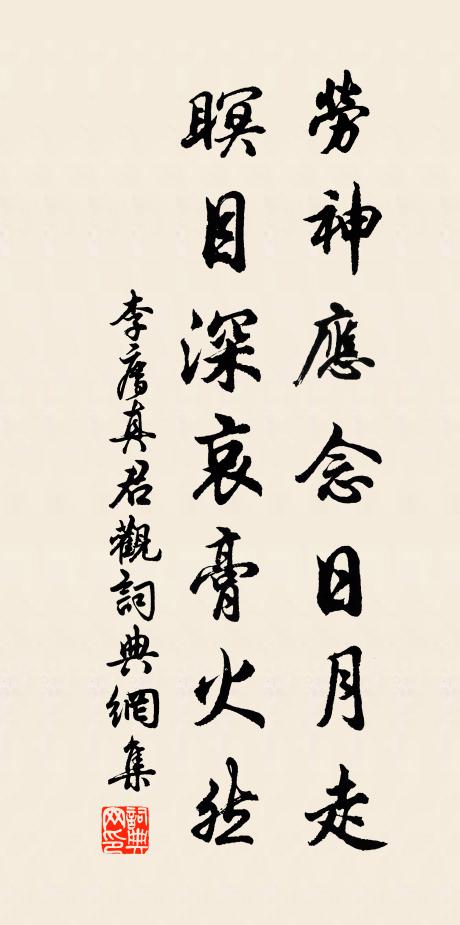 勞神應念日月走
瞑目深哀膏火然
李廌真君觀詞典網集
詞典网印